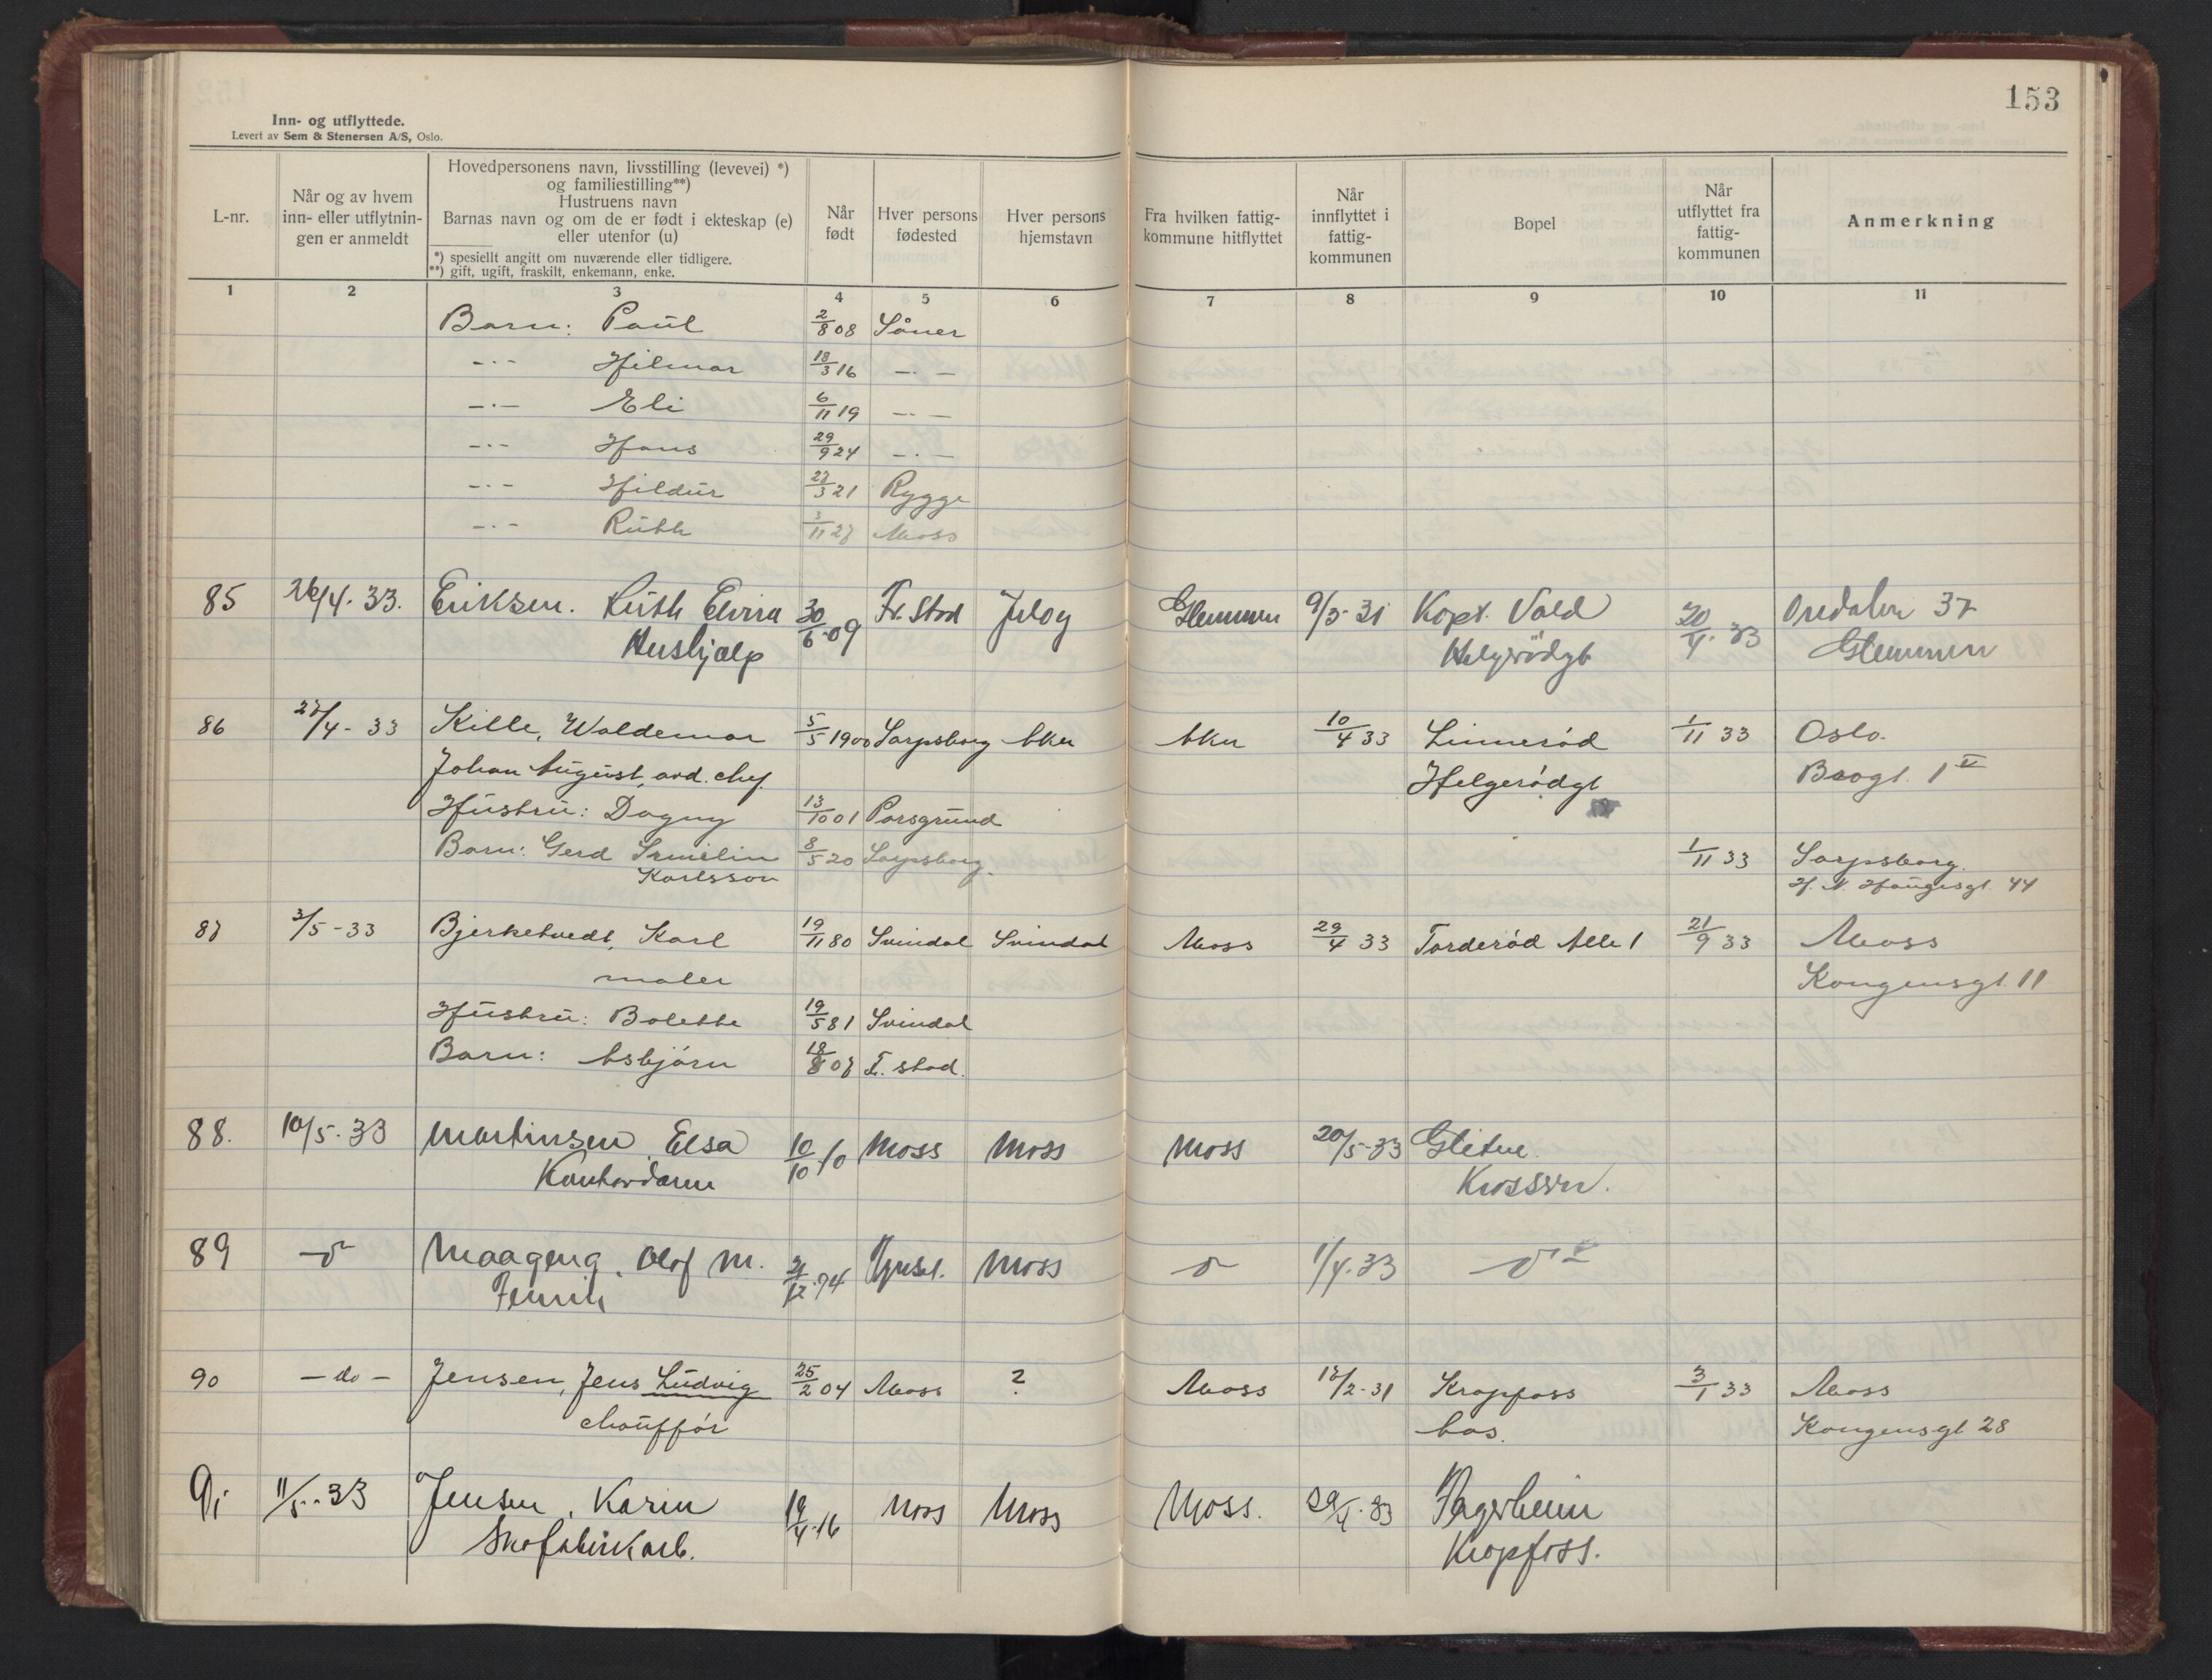 153
Inn- og utflyttede.
Levert av Sem & Stenersen A/S, Oslo.
L-nr.
Når og av hvem inn- eller utflytnin- gen er anmeldt
Hovedpersonens navn, livsstilling (levevei) *)
og familiestilling**)
Hustruens navn
Barnas navn og om de er født i ekteskap (e)
eller utenfor (u)
*) spesielt angitt om nuværende eller tidligere.
**) gift, ugift, fraskilt, enkemann, enke.
Når født
Hver persons fødested
Hver persons hjemstavn
Fra hvilken fattig- kommune hitflyttet
Når innflyttet i fattig- kommunen
Bopel
Når utflyttet fra fattig- kommunen
Anmerkning
1 2 3 4 5 6 7 8 9 10 11
Barn: Paul 2/8 08 Såner
-"- Hilmar 18/3 16 -"-
-"- Eli 6/11 19 -"-
-"- Hans 29/9 24 -"-
-"- Hildur 27/3 21 Rygge
-"- Ruth 3/11 27 Moss
85 26/4. 33. Eriksen. Ruth Elvira 30/6-09 Fr. Stad Jeløy Glemmen 9/3-31 Kapt. Vold 20/4. 33 Oredalen 37
Hushjælp Helgerødgt Glemmen
86 27/4- 33 Kille, Waldemar 5/5 1900 Sarpsborg Aker Aker 10/4 33 Linnerød 1/11 33 Oslo.
Johan August, avd. chef. Helgerødgt Brogt. 1 V
Hustru: Dagny 13/10 01 Porsgrund
Barn: Gerd Irmelin 8/5 20 Sarpsborg. 1/11 33 Sarpsborg.
Karlsson H. N. Haugesgt. 44
87 3/5-33 Bjerketvedt, Karl 19/11 80 Svindal Svindal Moss 29/4 33 Torderød Alle 1 21/9 33 Moss
maler Kongensgt. 11
Hustru: Bolette 19/5 81 Svindal
Barn: Asbjørn 18/8 07 F. stad.
88. 10/5-33 Martinsen, Elsa 10/10-10 Moss Moss Moss 20/5-33 Glitne
Kontordame Krossern.
89 -"- Maageng, Olof M. /12-74 Moss -"- 1/4.33 -"-
Fenrik
90 - do - Jensen, Jens Ludvig 25/2 04 Moss ? Moss 17/2-31 Kropfoss 3/1 33 Moss
chauffør bas. Kongensgt 28
91 11/5-33 Jensen, Karin 19/4-16 Moss Moss Moss. 29/4-33 Fagerheim
Skofabrikarb. Kropfoss.